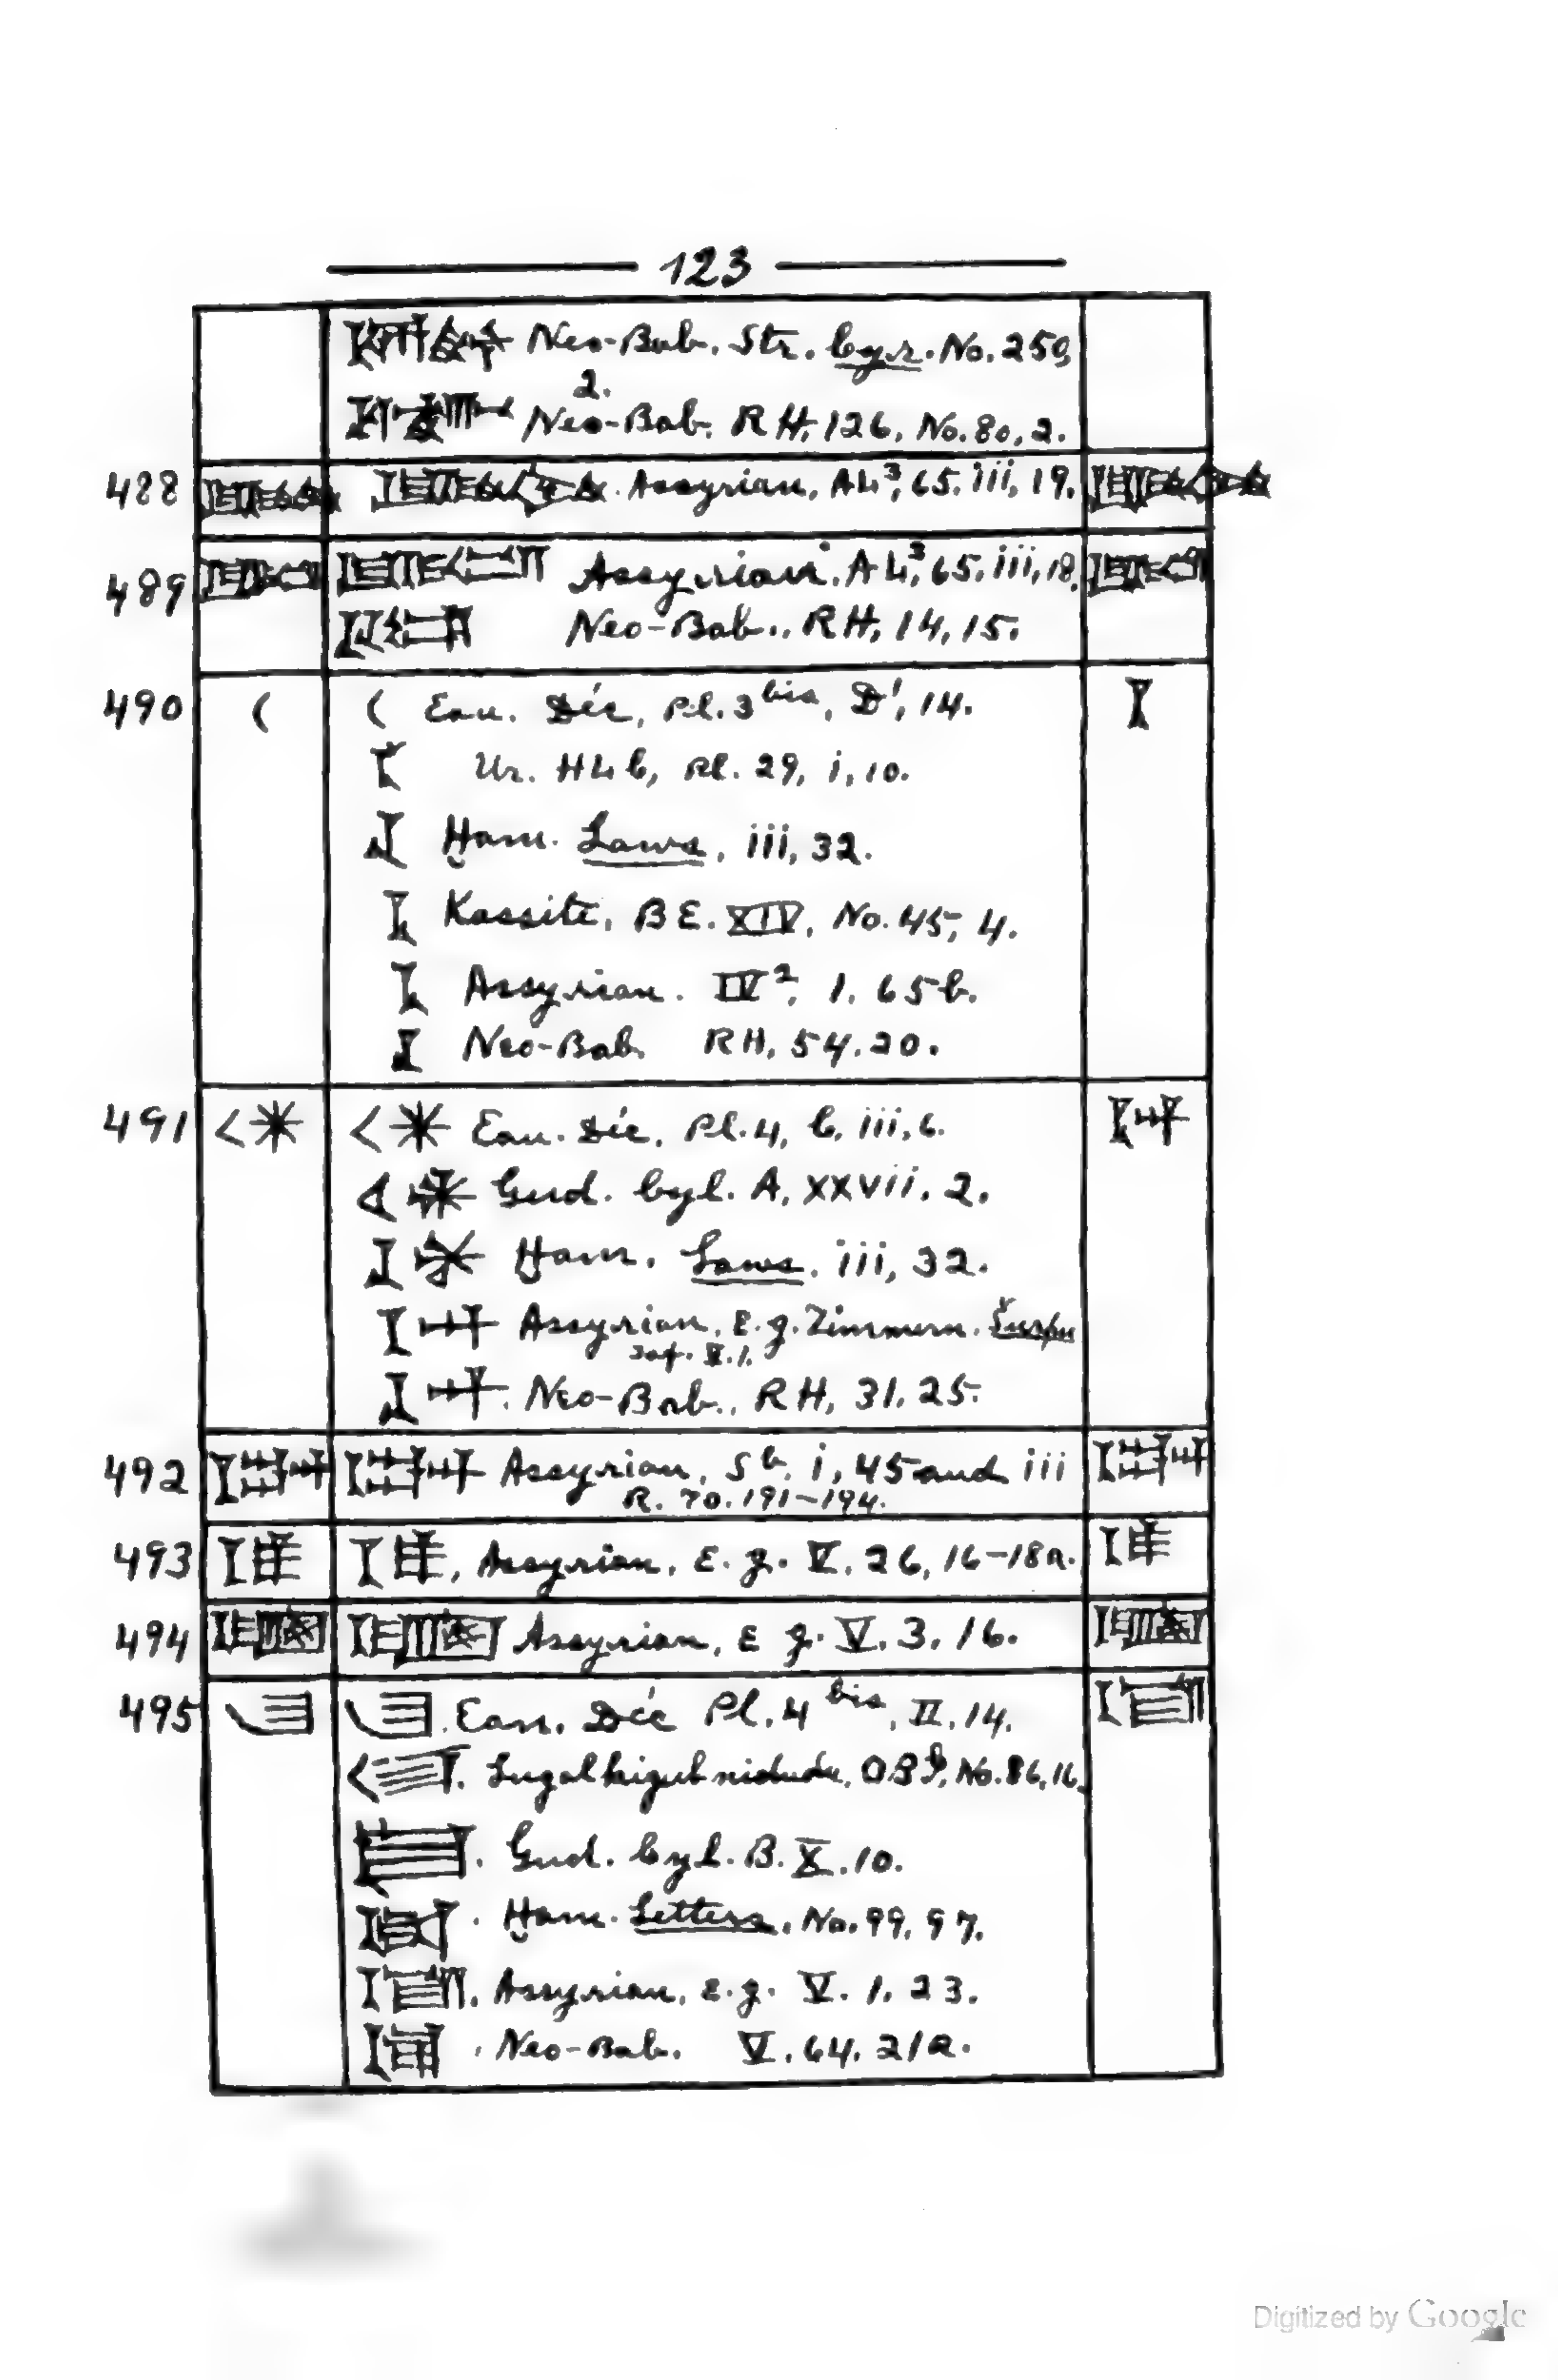 123
Neo-Bab. Str. Cyr. No. 259,
2.
Neo-Bab. RH, 126, No. 80, 2.
488 Assyrian, AL³, 65. iii, 19.
489 Assyrian, AL³, 65. iii, 18.
Neo-Bab., RH, 14, 15.
490 Ean. Déc, Pl. 3 bis, D', 14.
Ur. HLC, Pl. 29, i, 10.
Ḫam. Laws, iii, 32.
Kassite, BE. XIV, No. 45, 4.
Assyrian. IV², 1. 65 b.
Neo-Bab. RH, 54. 20.
491 Ean. Déc, Pl. 4, C, iii, 6.
Gud. Cyl. A, xxvii. 2.
Ḫam. Laws. iii, 32.
Assyrian, E. g. Zimmern. Šurpu
Taf. V. 1.
Neo-Bab., RH, 31. 25.
492 Assyrian, Sb, i, 45 and iii
R. 70. 191-194.
493 Assyrian, E. g. V. 26, 16-18a.
494 Assyrian, E g. V. 3. 16.
495 Ean. Déc Pl. 4 bis, II. 14.
Lugalkigubnidudu, OBI, No. 86, 16.
Gud. Cyl. B. X. 10.
Ḫam. Letters, No. 99, 97.
Assyrian, e.g. V. 1. 23.
Neo-Bab. V. 64. 21a.
Digitized by Google